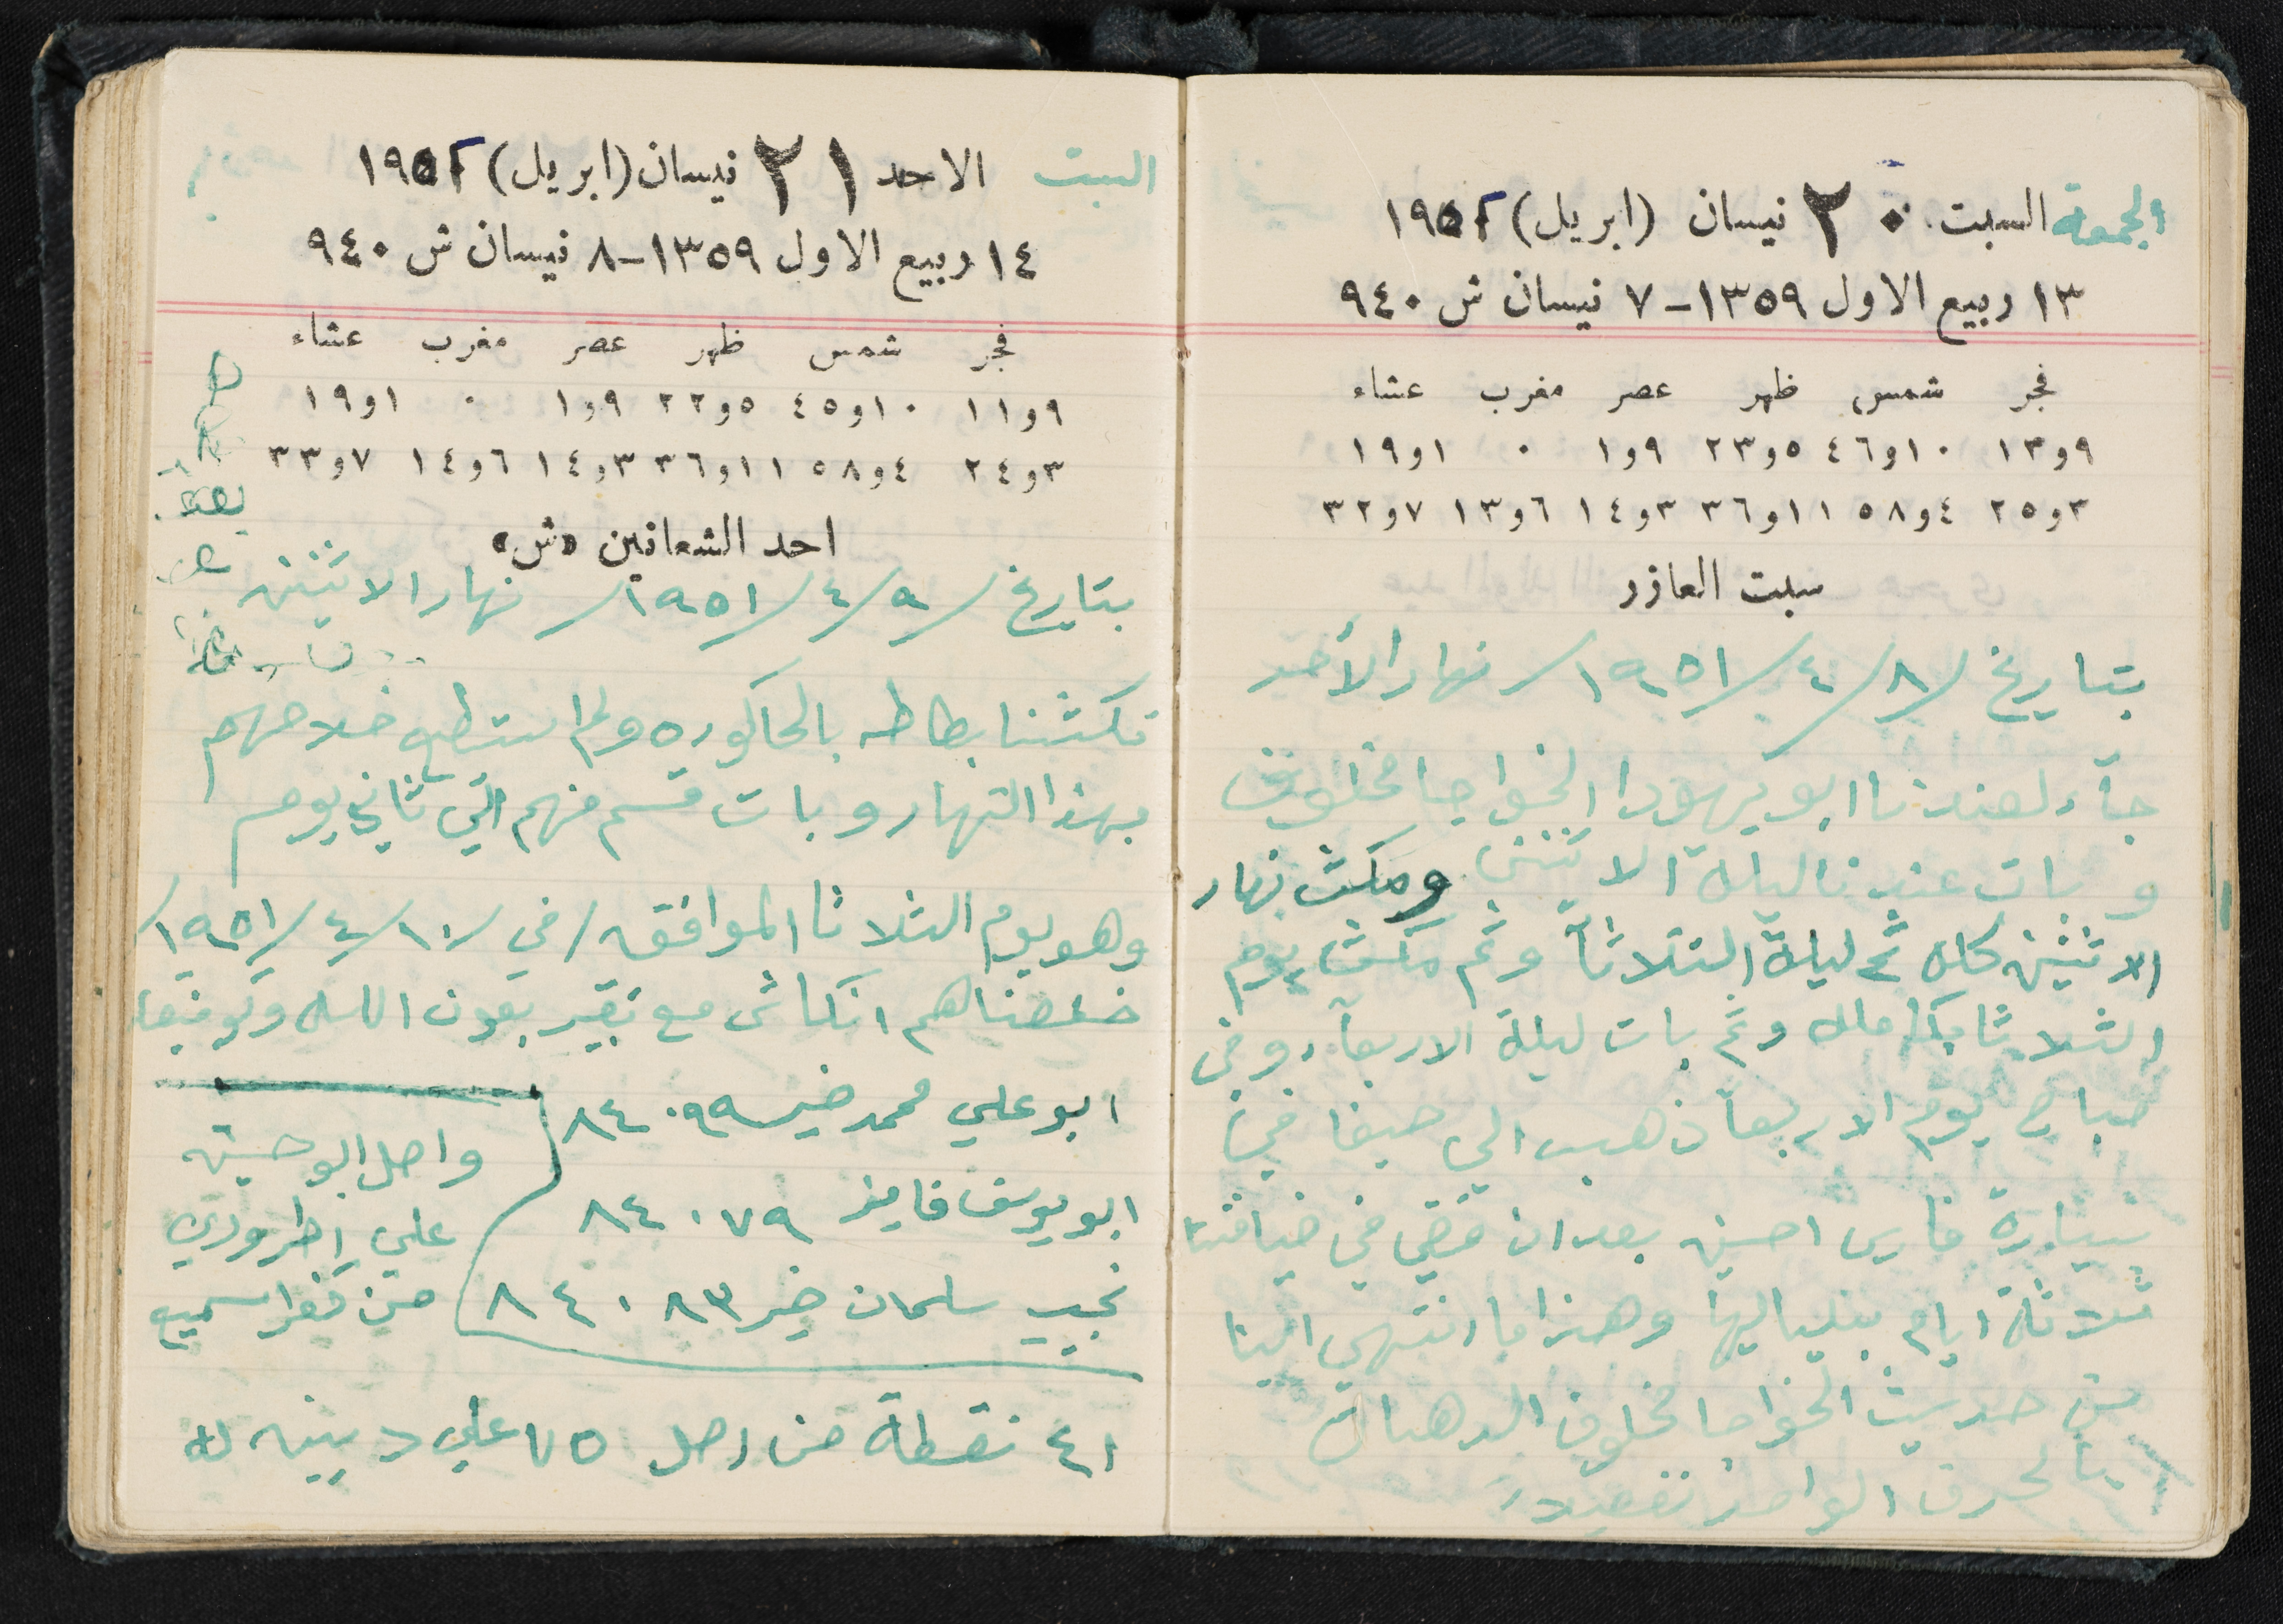 الجمعة السبت ٢٠ نيسان (ابريل) ١٩٥٢
١٣ ربيع الاول ١٣٥٩ - ٧ نيسان ش ٩٤٠
فجر شمس ظهر عصر مغرب عشاء
٩و١٣ ١٠و٤٦ ٥و٢٣ ٩و١ ٠ ١و١٩
٣و٢٥ ٤و٥٨ ١١و٣٦ ٣و١٤ ٦و١٣ ٧و٣٢
سبت العازر
بتاريخ /٨/٤/١٩٥١/ نهار الأحد
جآء لعندنا ابو يهودا الخواجا مخلوف
وبات عندنا ليلة الاثنين ومكث نهار
الاثنين كله ثم ليلة الثلاثآ وثم مكث يوم
الثلاثا بكامله وثم بات ليلة الاربعآء وفي
صباح يوم الاربعآ ذهب الي حيفا في
سيارة فارس احسين بعد ان قضي في ضيافتنا
ثلاثة ايام بلياليها وهذا ما انتهي الينا
من حديث الخواجا مخلوف الدهان
بالحرف الواحد تفصيلا
السبت الاحد ٢١ نيسان (ابريل) ١٩٥٢
١٤ ربيع الاول ١٣٥٩ - ٨ نيسان ش ٩٤٠
فجر شمس ظهر عصر مغرب عشاء
٩و١١ ١٠و٤٥ ٥و٢٢ ٩و١ ٠ ١و١٩
٣و٢٤ ٤و٥٨ ١١و٣٦ ٣و١٤ ٦و١٤ ٧و٣٣
احد الشعانين «ش»
بتاريخ /٩/٤/١٩٥١/ نهار الاثنين
نكشنا بطاطه بالحاكوره ولم استطع خلاصهم
بهذا النهار وبات قسم منهم الي ثاني يوم
وهو يوم الثلاثا الموافق /في /١٠/٤/١٩٥١/
خلصناهم انكاش مع بعون الله وتوفيقه
ابو علي محمد خير ٨٤٠٩٩
ابو يوسف فايز ٨٤٠٧٩
نجيب سلمان خير ٨٤٠٨٣
واصل ابو حسين
علي
من كفر اسميع
٤١ نقطة من اصل ٧٥ علي دينه له